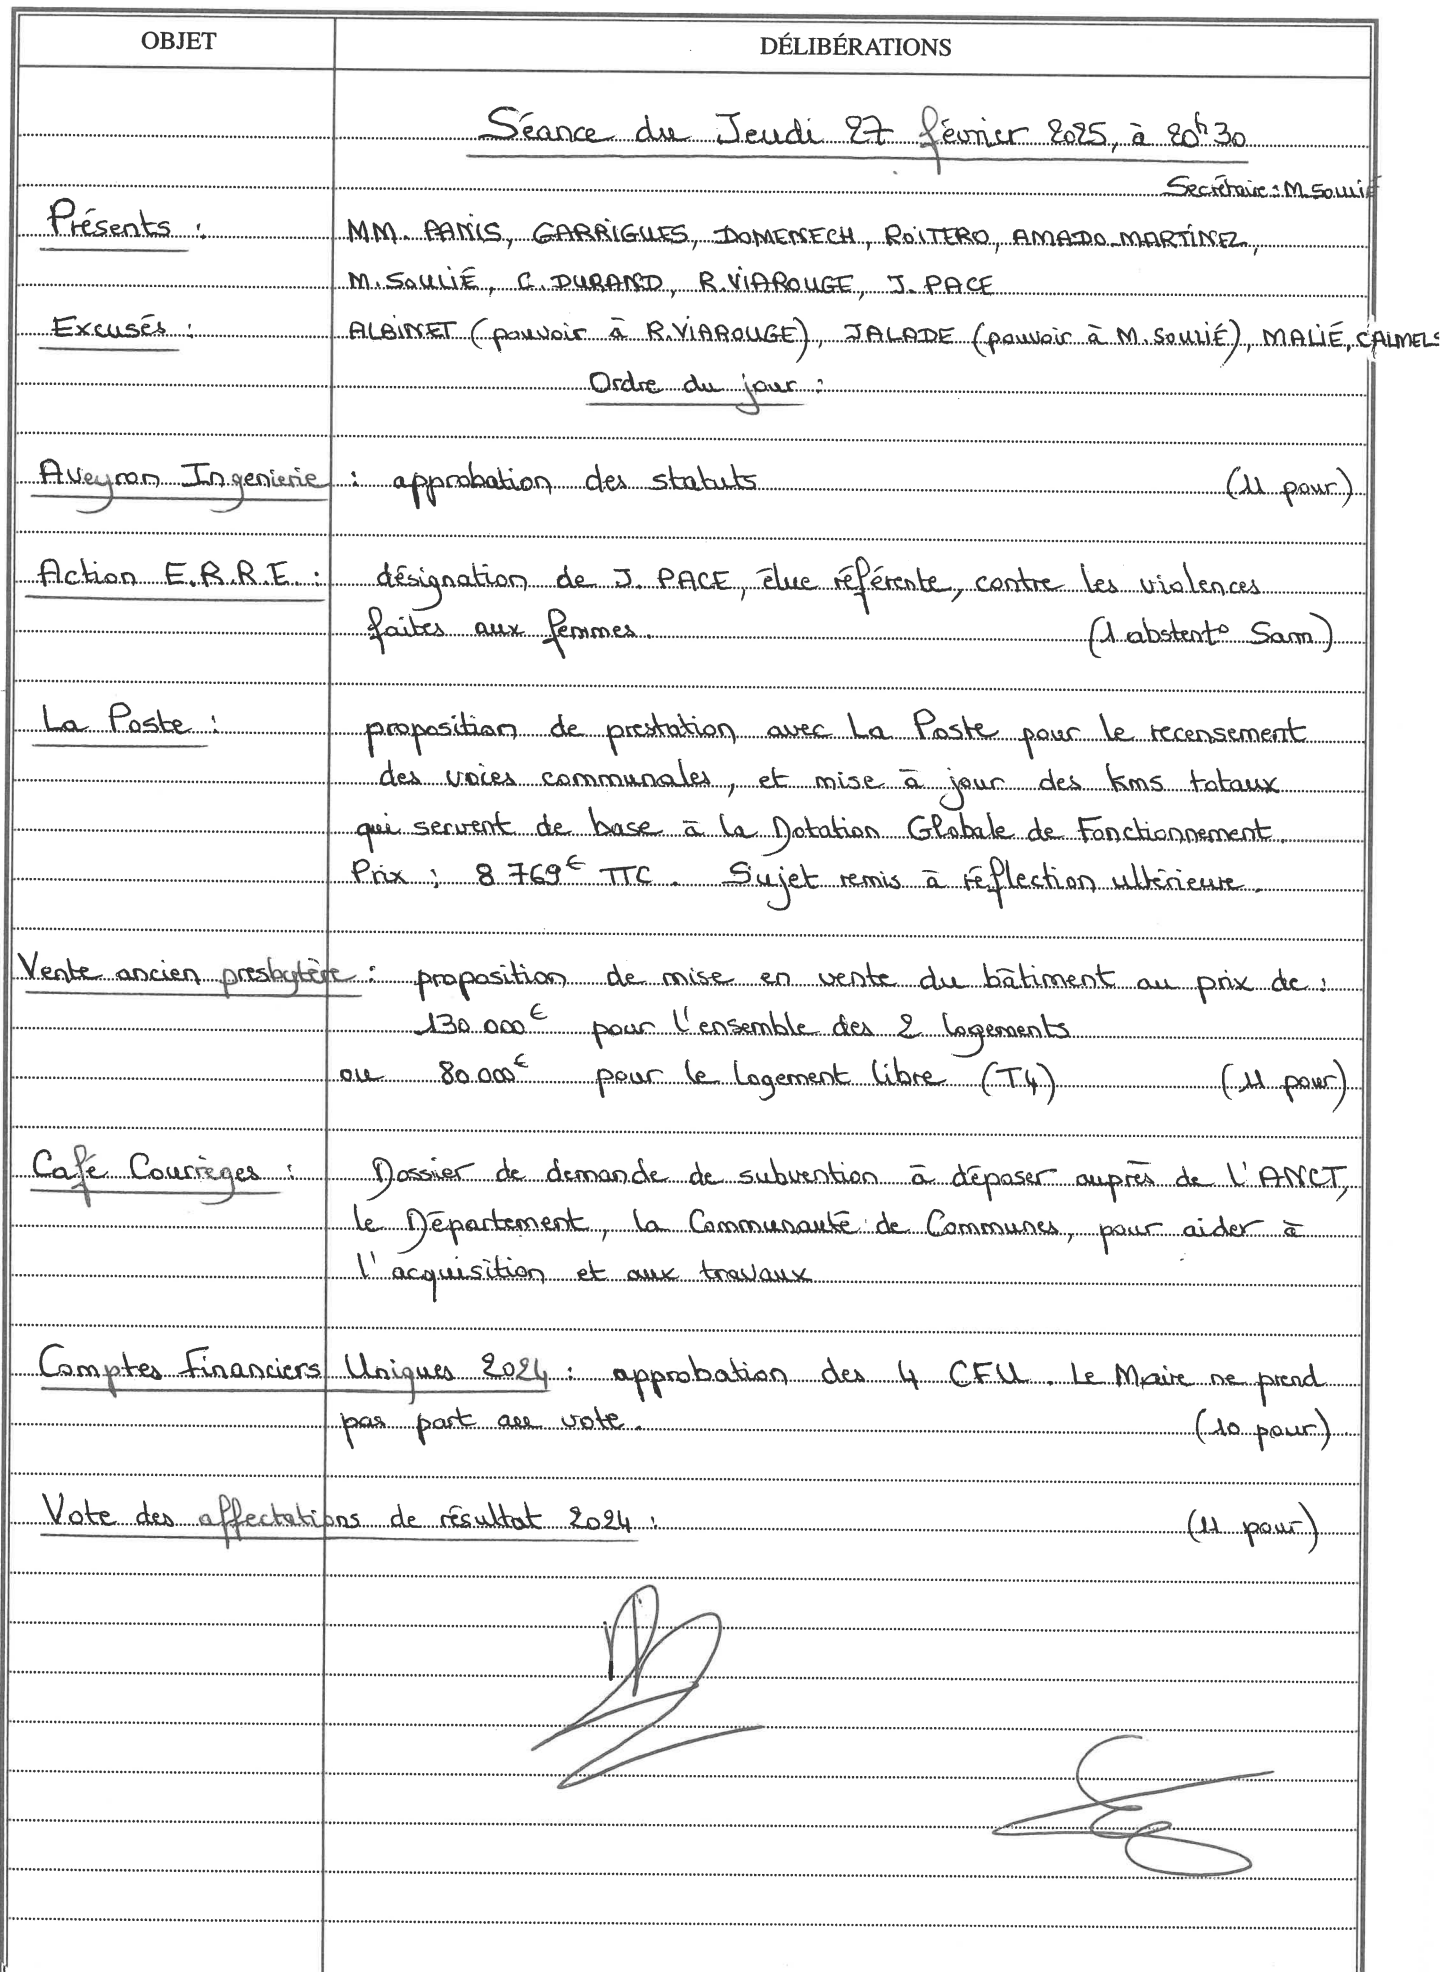 OBJET DÉLIBÉRATIONS
Séance du Jeudi 27 février 2025, à 20h30
Secrétaire : M. SOULIÉ
Présents : MM. PANIS, GARRIGUES, DOMENECH, ROITERO, AMADO-MARTINEZ,
M. SOULIÉ, C. DURAND, R. VIAROUGE, J. PACE
Excusés : ALBINET (pouvoir à R. VIAROUGE), JALADE (pouvoir à M. SOULIÉ), MALIÉ, CALMELS
Ordre du jour :
Aveyron Ingenierie : approbation des statuts (11 pour)
Action E.R.R.E. : désignation de J. PACE, élue référente, contre les violences
faites aux femmes. (1 abstent° Sam)
La Poste : proposition de prestation avec La Poste pour le recensement
des voies communales, et mise à jour des kms totaux
qui servent de base à la Dotation Globale de Fonctionnement.
Prix : 8 769€ TTC. Sujet remis à réflection ultérieure.
Vente ancien presbytère : proposition de mise en vente du bâtiment au prix de :
130.000€ pour l'ensemble des 2 logements
ou 80.000€ pour le logement libre (T4) (11 pour)
Café Courrèges : Dossier de demande de subvention à déposer auprès de l'ANCT,
le Département, la Communauté de Communes, pour aider à
l'acquisition et aux travaux
Comptes Financiers Uniques 2024 : approbation des 4 CFU. Le Maire ne prend
pas part au vote. (10 pour)
Vote des affectations de résultat 2024 : (11 pour)